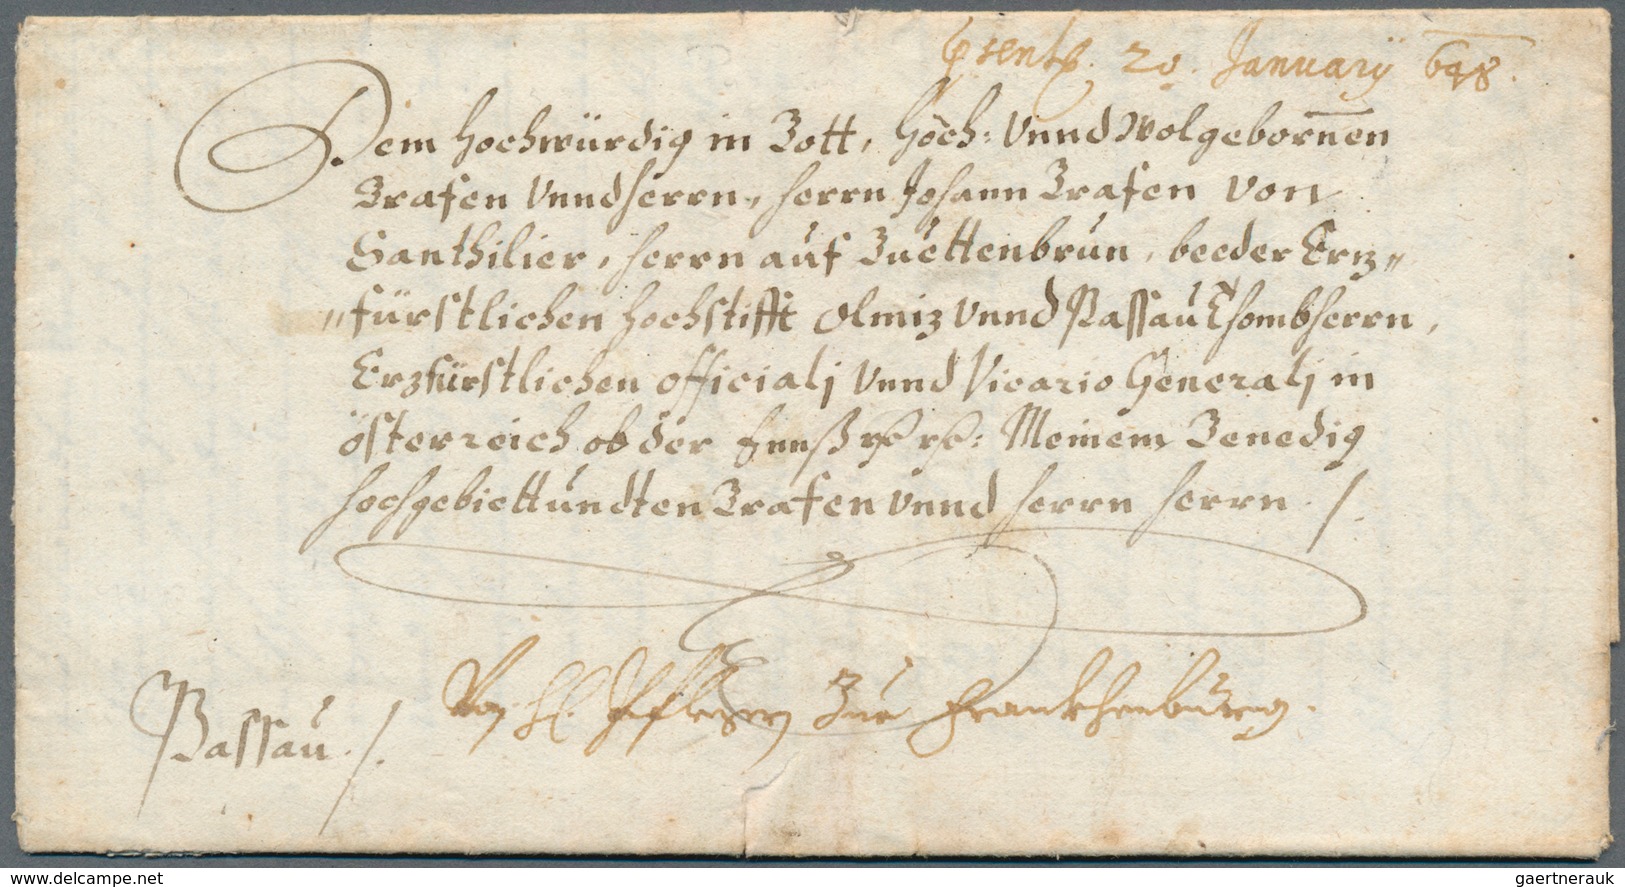 praesent. 20. Januarÿ 648.
Dem Hochwürdig in Gott, Hoch: Vnnd Wolgebornnen
Grafen Vnnd Herrn, Herrn Johann Grafen von
Santhilier, Herrn auf Guettenbrun, beeder Erz„
„fürstlichen Hochstifft Olmiz Vnnd Passau Thombherrn,
Erzfürstlichen Officialj Vnnd Vicario Generalj in
össterreich ob der Ennß Meinem Genedig
hochgebiettundten Grafen Vnnd Herrn Herrn. /.
Von H. Pfleger Zue Frankhenburg.
Passau. /.
www.delcampe.net
gaertnerauk